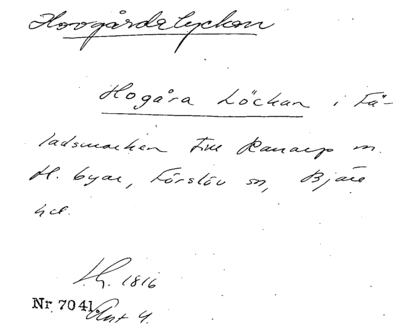 Hovgårdslyckan
Hogåra Löckan i Få-
ladsmarken till Ranarp m.
fl. byar, Förslöv sn, Bjäre
hd.
1816
Nr 7041